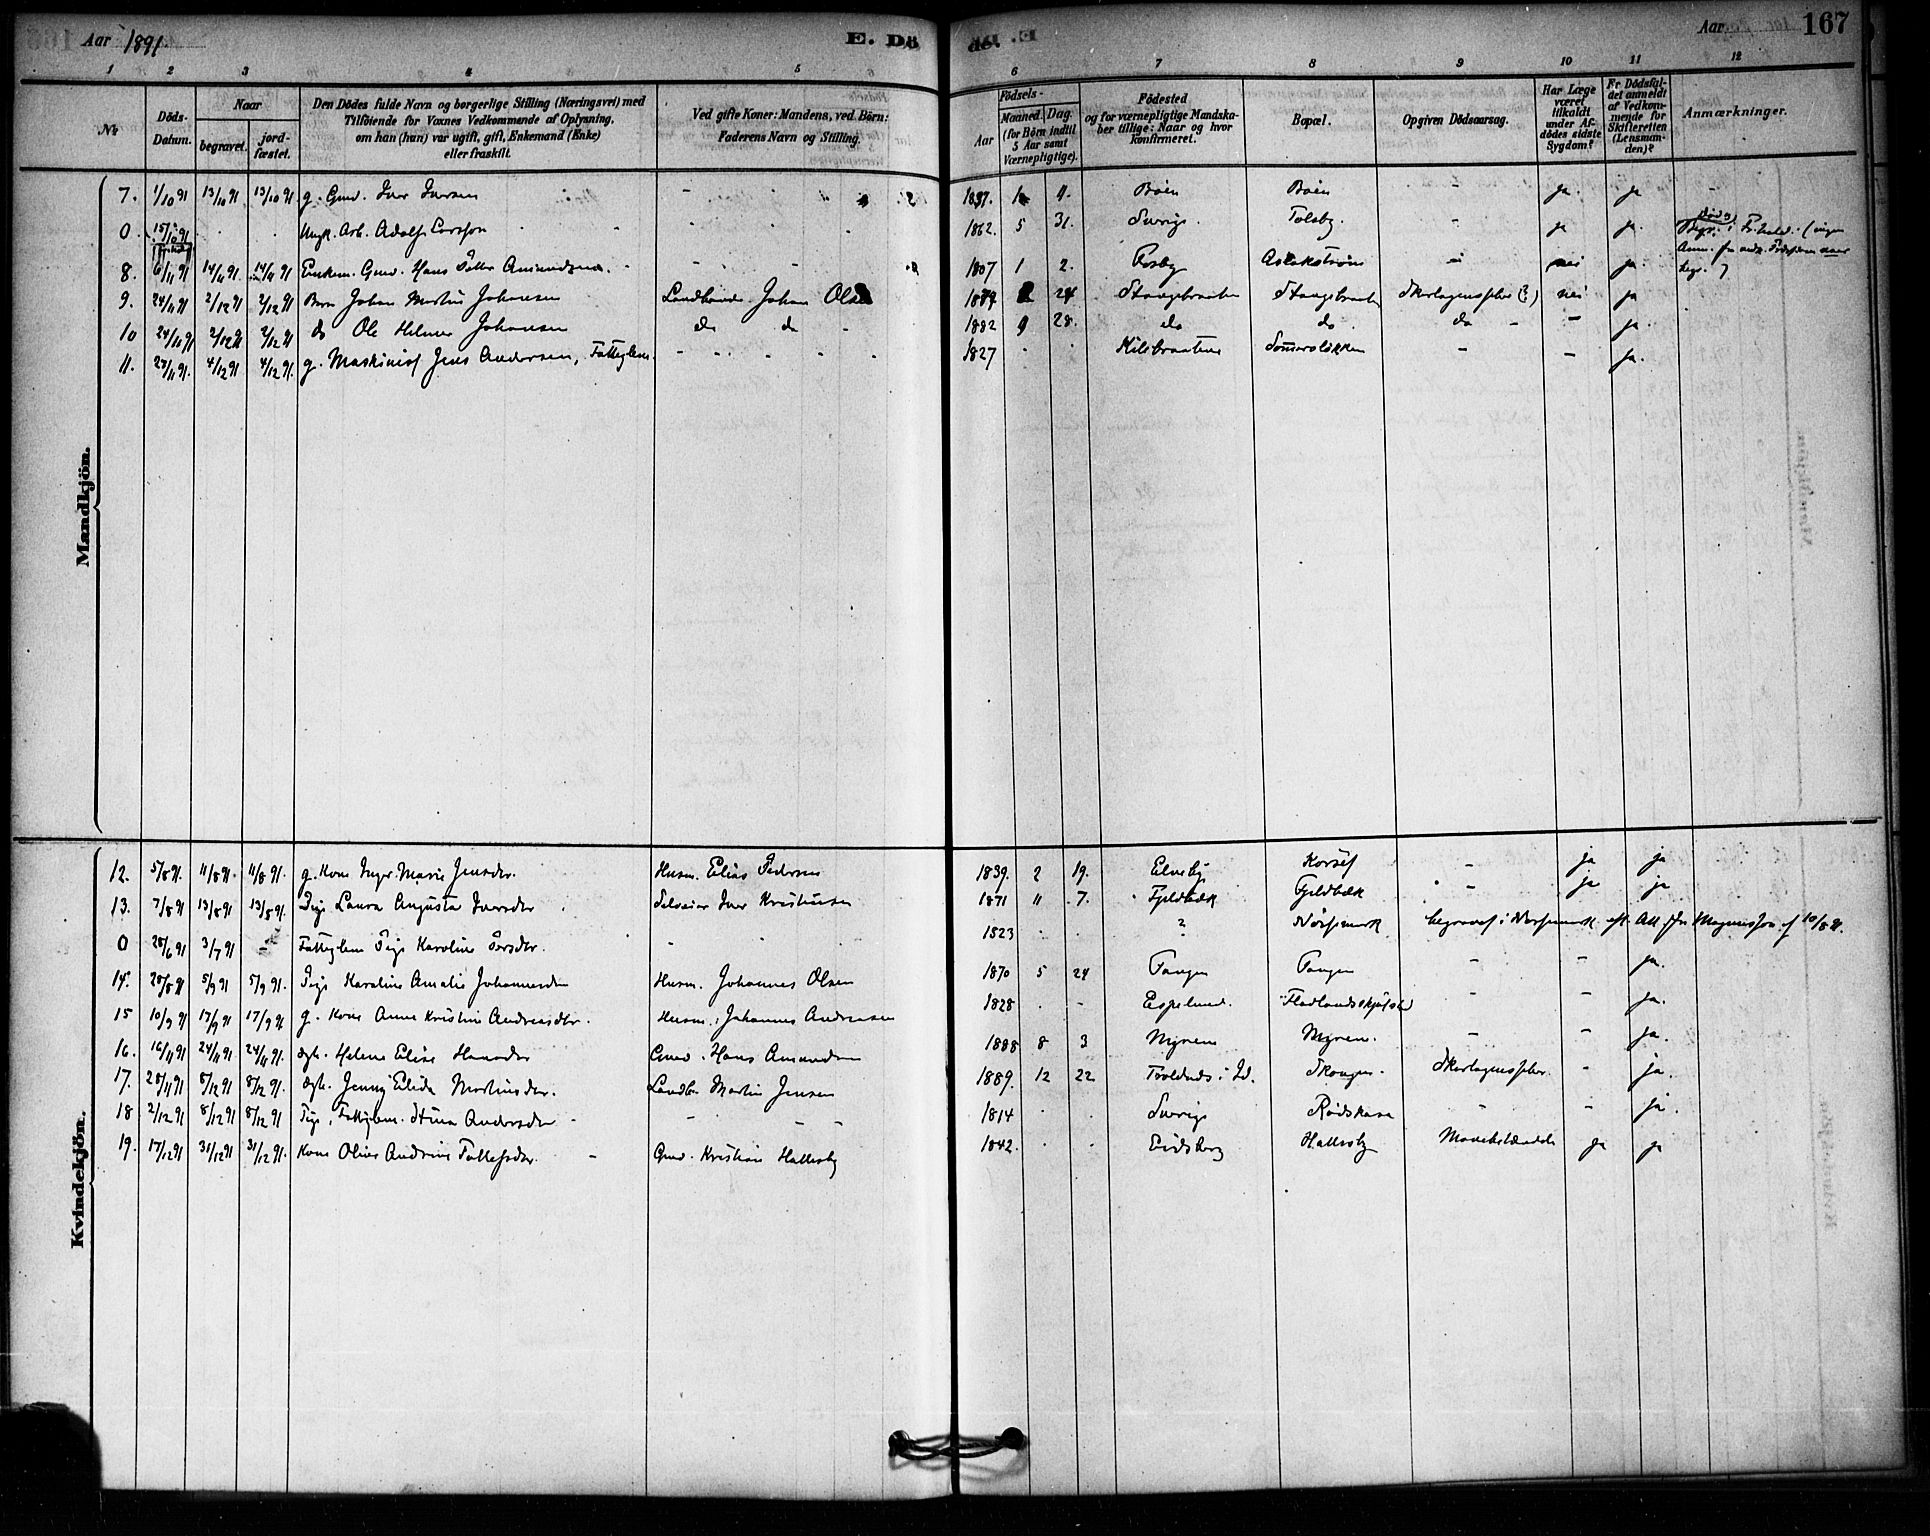 Aar 1891
E. Dö
de.
Aar
167
1 2 3 4 5 6 7 8 9 10 11 12
№
Döds-Datum.
Naar
begravet.
jord-fæstet.
Den Dödes fulde Navn og borgerlige Stilling (Næringsvei) med
Tilföiende for Voxnes Vedkommende af Oplysning,
om han (hun) var ugift, gift, Enkemand (Enke)
eller fraskilt.
Ved gifte Koner: Mandens, ved Börn:
Faderens Navn og Stilling.
Födsels-
Aar
Maaned.
Dag.
(for Börn indtil
5 Aar samt
Værnepligtige).
Födested
og for værnepligtige Mandska-
ber tillige: Naar og hvor
konfirmeret.
Bopæl.
Opgiven Dödsaarsag.
Har Læge
været
tilkaldt
under Af-
dödes sidste
Sygdom?
Er Dödsfal-
det anmeldt
af Vedkom-
mende for
Skifteretten
(Lensman-
den)?
Anmærkninger.
Mandkjön.
7. 1/10 91 13/10 91 13/10 91 g. Gmd. Iver Iversen 4. Boin Boin ja ja
0 15/10 91 Ungk. Arb. Adolf Larsson 1862. 5 31. Sverige ja ja.
8. 6/11 91 14/11 91 14/11 91 Enkem. Gmd. Hans Petter Amundsen 1807 1 2. Aslakstrøm nei ja.
9. 24/11 91 2/12 91 2/12 91 Barn Johan Martin Johansen Landhandl. Johan Olsen 24 Stangebraaten Stangebraaten Skarlagensfeber (?) nei ja
10 2/12 91 2/12 91 do Ole Helmer Johansen do do 1882 9 28. do do do ja.
11. 4/12 91 4/12 91. g. Maskinist Jens Andersen, Fattiglem. 1827 Kilebraatene ja.
Kvindekjön.
12. 5/8 91. 11/8 91. 11/8 91. g. Kone Inger Marie Jensdtr. Husm. Elias Pedersen 1839. 2 19. Elneby Korset ja ja
13. 7/8 91 13/8 91 13/8 91. Pige Laura Augusta Iversdtr Selveier Iver Kristiansen 1871 11 7. Fjeldbæk Fjeldbæk ja ja
0 28/6 91 3/7 91 Fattiglem Pige Karoline 1823 ?
14. 28/8 91 5/9 91 5/9 91. Pige Karoline Amalie Johannesdtr Husm. Johannes Olsen 1870 5 24 Tangen Tangen ja.
15 10/9 91 17/9 91 17/9 91 g. Kone Anne Kristine Andreasdtr. Husm. Johannes Andreasen 1828 Espelund. ja.
16. 16/11 91 24/11 91 24/11 91. Helene Elise Hansdtr Gmd. Hans Amundsen 1888 8 3 Myrene Myrene. ja.
17. 28/11 91 8/12 91 8/12 91. Jenny Elida Martinsdtr. Landbr. Martin Jensen 1889. 12 22 Skougen. Skarlagensfeber ja.
18 2/12 91 8/12 91 8/12 91 Pige, Fattiglem. Stina Andersdtr 1814 Sverige ja.
19. 17/12 91 31/12 91 31/12 91. Kone Oline Andrine Tollefsdtr. Gmd. Kristian Hallesby 1842. Eidsberg Hallesby ja ja